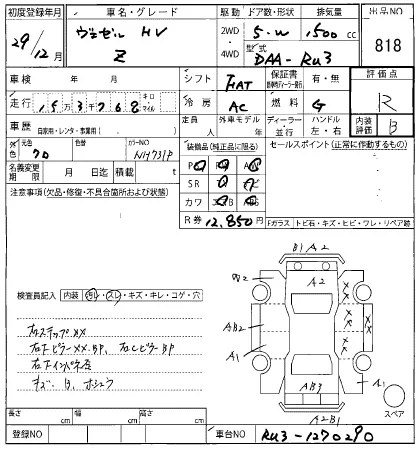 初度登録年月 車名・グレード 駆動 ドア数・形状 排気量 出品NO
29/12月 ヴェゼル HV 2WD 5・W 1500 cc 818
Z 4WD 型式 DAA-RU3
車検 年 月 シフト FAT 保証書 有・無 評価点
走行 153768 キロ マイル 冷房 AC 燃料 G R
車歴 自家用・レンタ・事業用( ) 定員 人 外車モデル 年 ディーラー 並行 ハンドル 左・右 内装評価 B
外色 元色 クロ 色替 カラーNO NH731P 装備品(純正品に限る) セールスポイント(正常に作動するもの)
名義変更期限 月 日迄 積載 t PS PW AW
注意事項(欠品・修復・不具合箇所および状態) SR ナビ
カワ エアB ABS
R券 12,850円 Fガラス トビ石・キズ・ヒビ・ワレ・リペア跡
B1 A2
A2
検査員記入 内装 汚レ・スレ・キズ・キレ・コゲ・穴
AB2
A1
AB3
A1
A2B1
スペア
右ステップXX
右FピラーXX.BP、右CピラーBP
キズ B、
長さ cm 幅 cm 高さ cm
登録NO 車台NO RU3-1270290